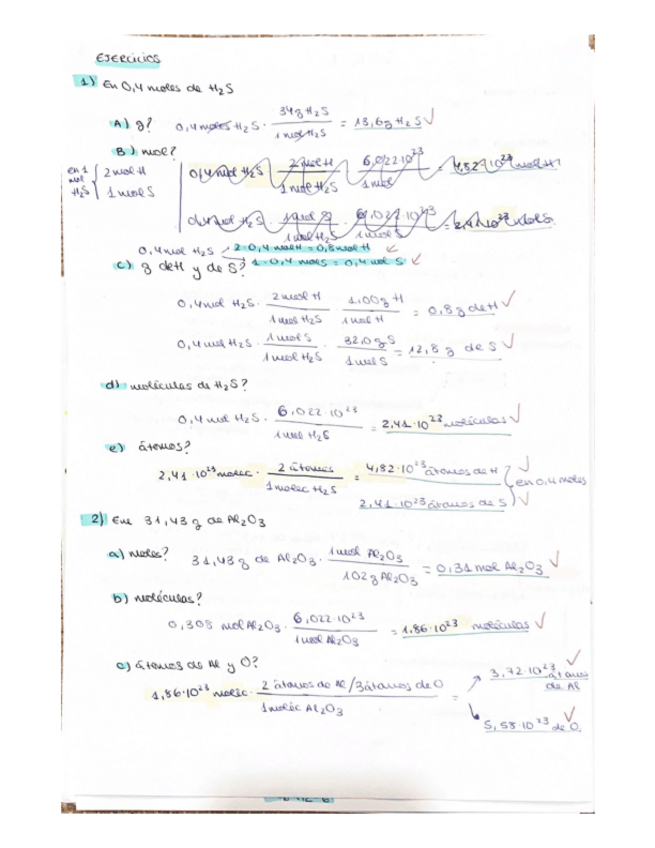 EJERCICIOS
1) En 0,4 moles de H₂S
A) g? 0,4 moles H₂S · 34g H₂S / 1 mol H₂S = 13,6g H₂S ✓
B) mol?
en 1 mol H₂S { 2 mol H
1 mol S
0,4 mol H₂S · 2 mol H / 1 mol H₂S · 6,022·10²³ / 1 mol = 4,82·10²³ mol H
0,4 mol H₂S · 1 mol S / 1 mol H₂S · 6,022·10²³ / 1 mol S = 2,4·10²³
0,4 mol H₂S → 2·0,4 mol H = 0,8 mol H ✓
→ 1·0,4 mol S = 0,4 mol S ✓
c) g de H y de S?
0,4 mol H₂S · 2 mol H / 1 mol H₂S · 1,00g H / 1 mol H = 0,8g de H ✓
0,4 mol H₂S · 1 mol S / 1 mol H₂S · 32,0g S / 1 mol S = 12,8 g de S ✓
d) moléculas de H₂S?
0,4 mol H₂S · 6,022·10²³ / 1 mol H₂S = 2,41·10²³ moléculas ✓
e) átomos?
2,41·10²³ molec · 2 átomos / 1 molec H₂S = 4,82·10²³ átomos de H ✓
2,41·10²³ átomos de S ✓ } en 0,4 moles
2) En 31,43 g de Al₂O₃
a) moles? 31,43 g de Al₂O₃ · 1 mol Al₂O₃ / 102 g Al₂O₃ = 0,31 mol Al₂O₃ ✓
b) moléculas?
0,308 mol Al₂O₃ · 6,022·10²³ / 1 mol Al₂O₃ = 1,86·10²³ moléculas ✓
c) átomos de Al y O?
1,86·10²³ molec · 2 átomos de Al / 3 átomos de O / 1 molec Al₂O₃ = → 3,72·10²³ átomos de Al ✓
→ 5,58·10²³ de O. ✓